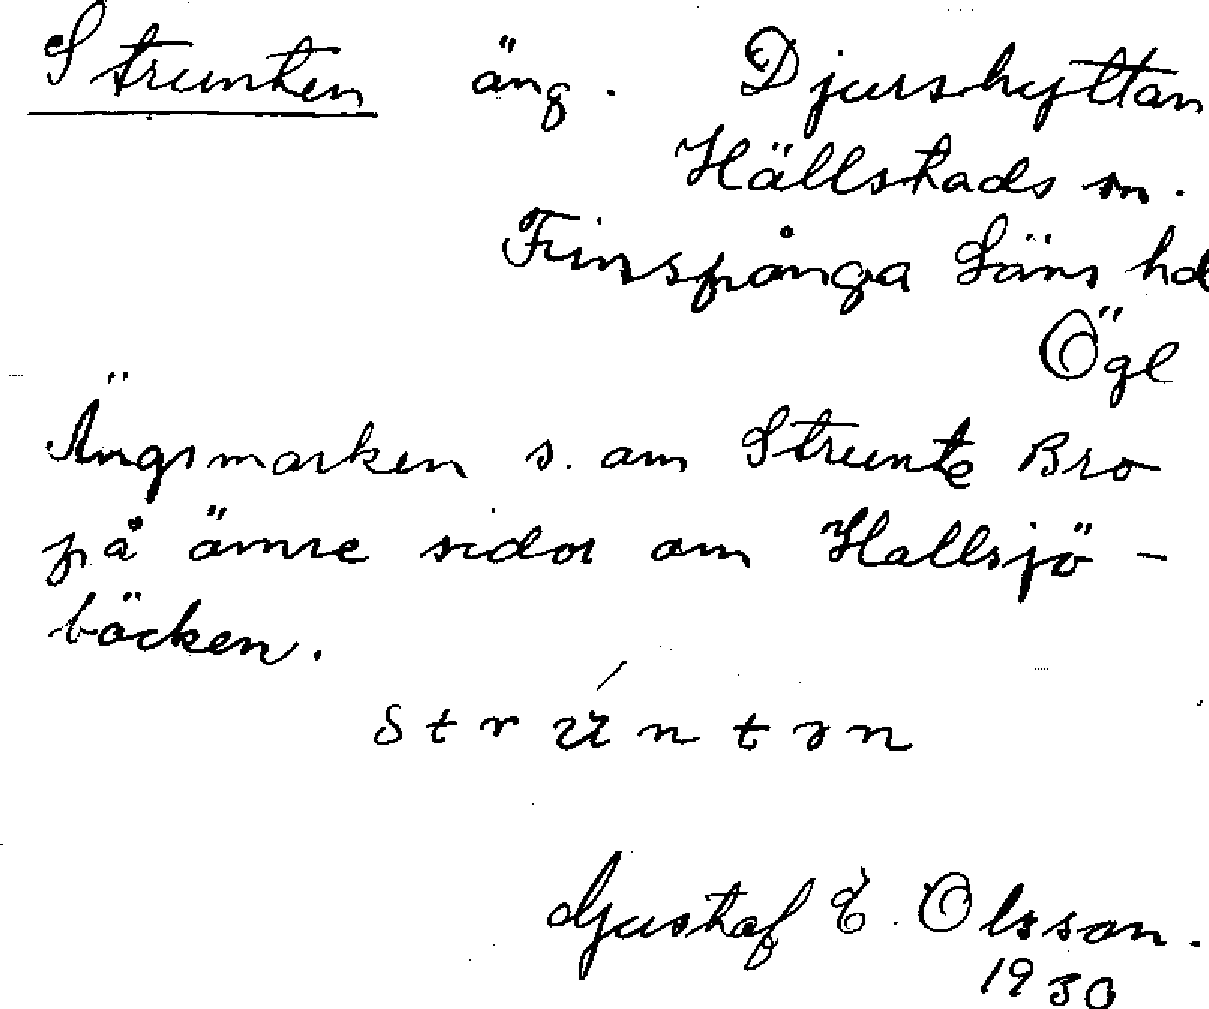 Strunten äng. Djurshyttan
Hällstads sn.
Finspånga Läns hd
Ögl
Ängsmarken s. om Strunte Bro
på ömse sidor om Hallsjö-
bäcken.
Gustaf E. Olsson.
1930